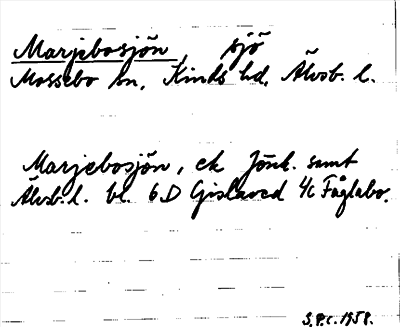 Marjebosjön, sjö
Mossebo sn, Kinds hd, Älvsb. l.
Marjebosjön, ek Jönk. samt
Älvsb. l. bl. 6D Gislaved 4c Fåglabo.
S.P.C. 1958.